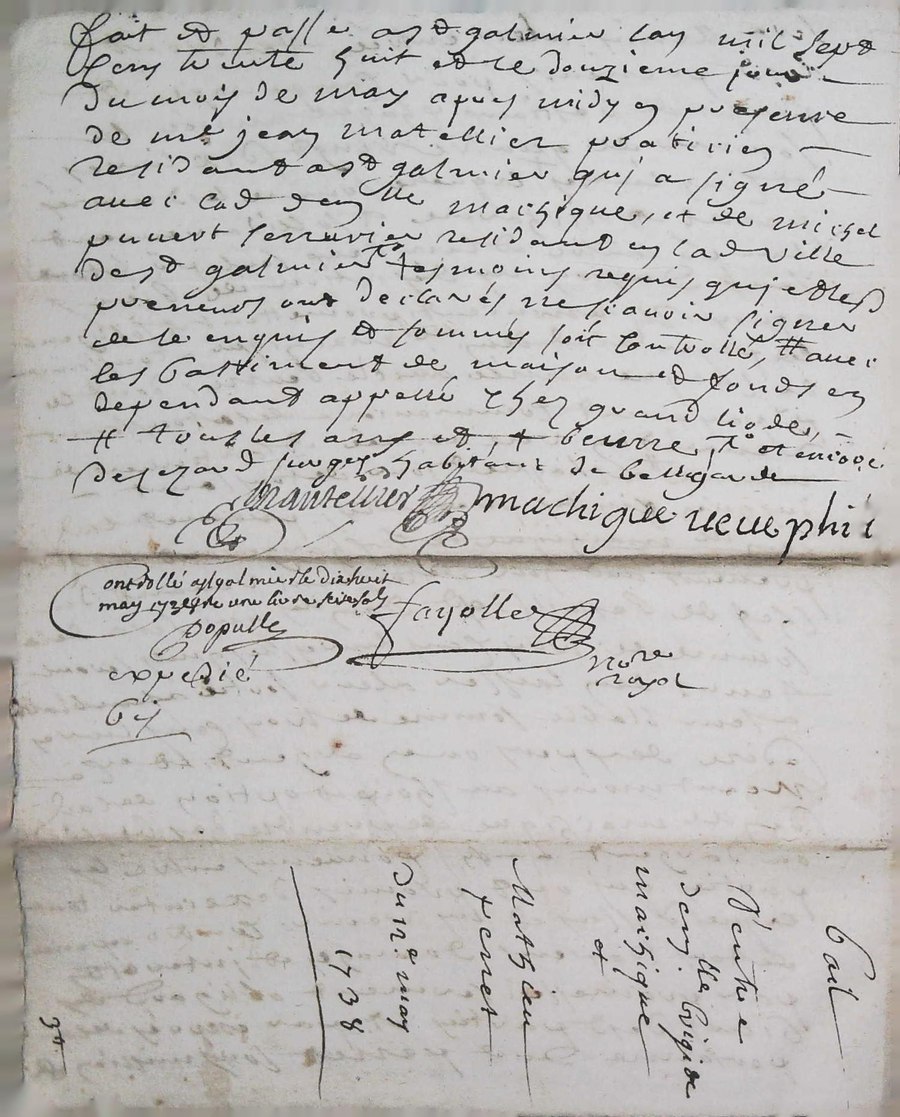 fait et passé a st galmier lan mil sept
cens trente huit et le douzieme jour
du mois de may apres midy en presence
de me jean matellier praticien
residant a st galmier qui a signé
avec lad demlle machique, et de michel
puvert serrurier residant en lad ville
de st galmier tesmoins requis qui et led
preneur ont declarés ne scavoir signer
de ce enquis et sommés soit controllé, # avec
les bastiment de maison et fonds en
dependant appellé chez grand liode,
# tous les ans et, + beurre, et encore
habitant de bellegarde
mautellier machique veuve phi
ontrollé a st galmier le dixhuit
may 1738 une livre seise sols
Populle
fayolle
expedié no re
royal
bail
d'entre
demlle brigide
machique
et
Mathieu
ferret
du may
1738